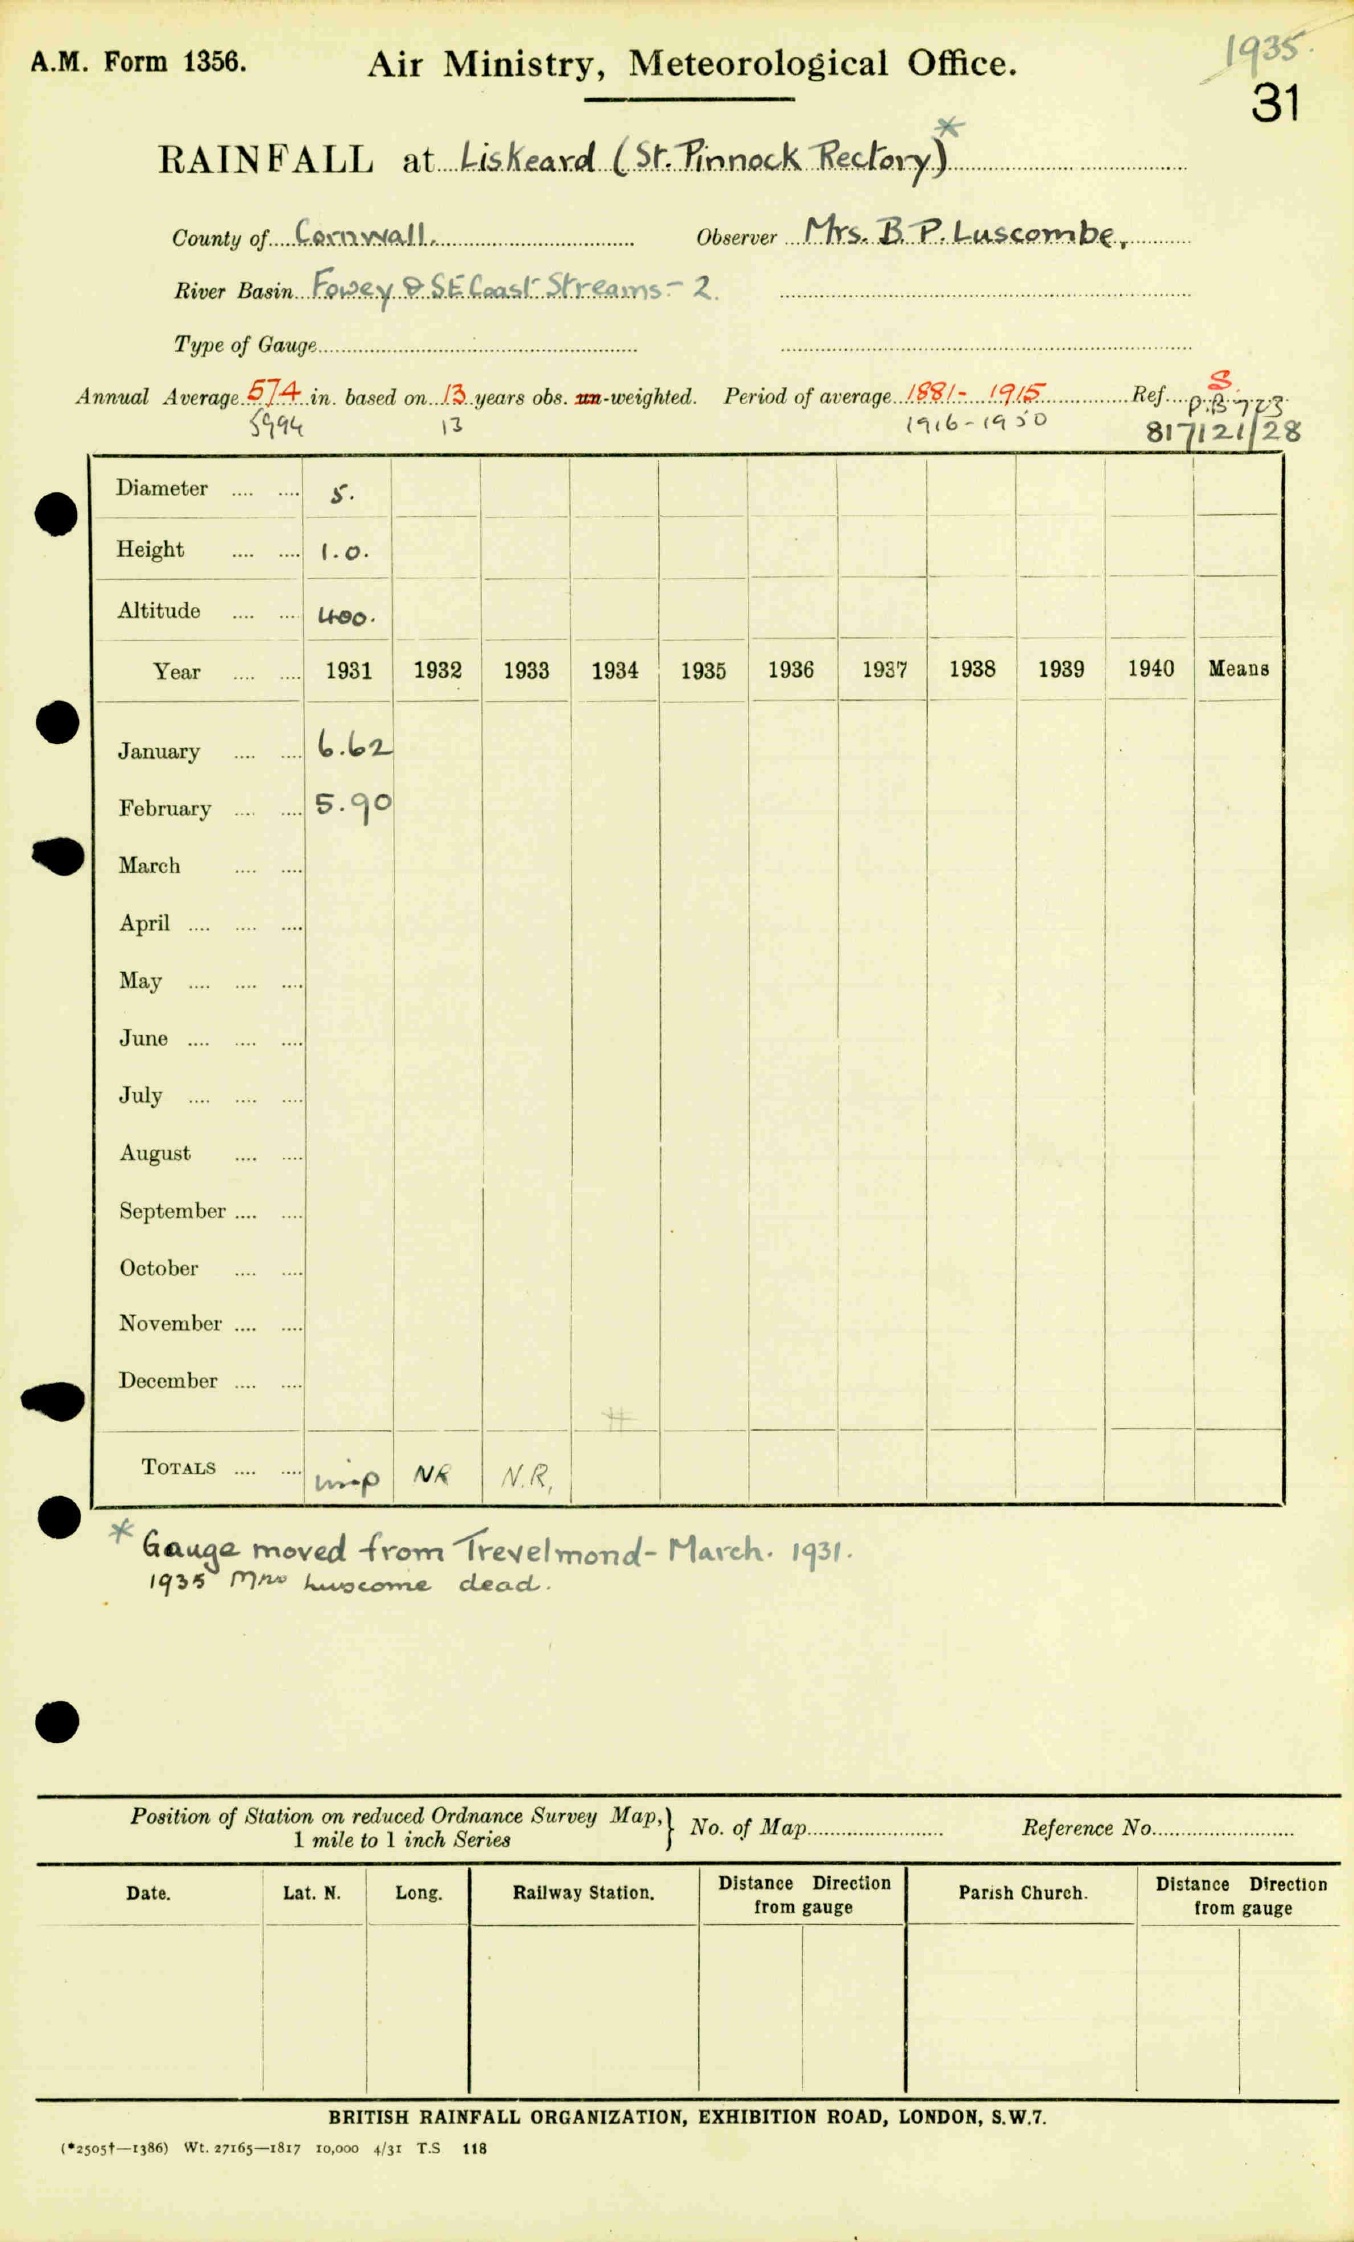 1935.
A.M. Form 1356. Air Ministry, Meteorological Office.
31
RAINFALL at Liskeard (St. Pinnock Rectory)*
County of Cornwall. Observer Mrs. B. P. Luscombe,
River Basin Fowey & SE Coast Streams - 2.
Type of Gauge
S.
Annual Average 574 in. based on 13 years obs. un-weighted. Period of average 1881 - 1915 Ref. P.B 723
5994 13 1916-1950 817121/28
Diameter 5.
Height 1.0.
Altitude 400.
Year 1931 1932 1933 1934 1935 1936 1937 1938 1939 1940 Means
January 6.62
February 5.90
March
April
May
June
July
August
September
October
November
December
#
TOTALS imp NR N.R.
* Gauge moved from Trevelmond - March. 1931.
1935 Mrs Luscome dead.
Position of Station on reduced Ordnance Survey Map, } No. of Map Reference No.
1 mile to 1 inch Series
Date. Lat. N. Long. Railway Station. Distance Direction from gauge Parish Church. Distance Direction from gauge
BRITISH RAINFALL ORGANIZATION, EXHIBITION ROAD, LONDON, S.W.7.
(*2505†—1386) Wt. 27165—1817 10,000 4/31 T.S 118